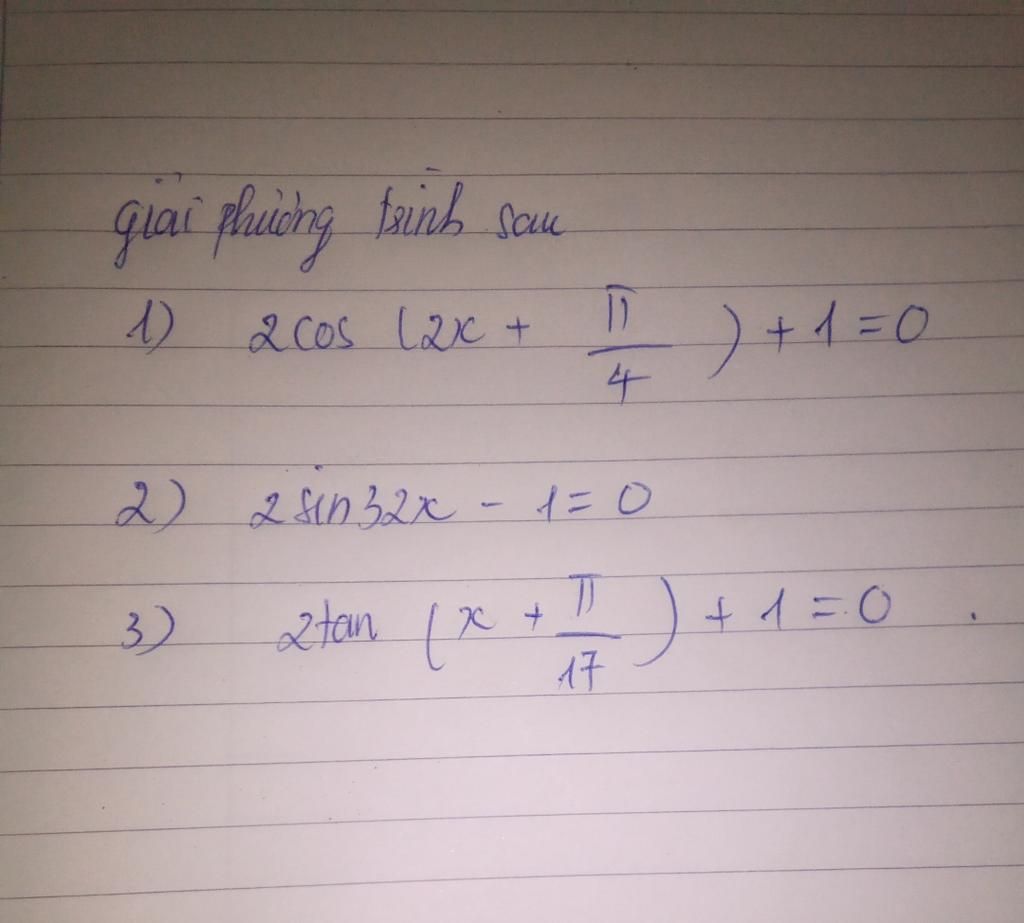 giải phương trình sau
1) 2cos (2x + π/4) + 1 = 0
2) 2 sin32x - 1 = 0
3) 2tan (x + π/17) + 1 = 0 .